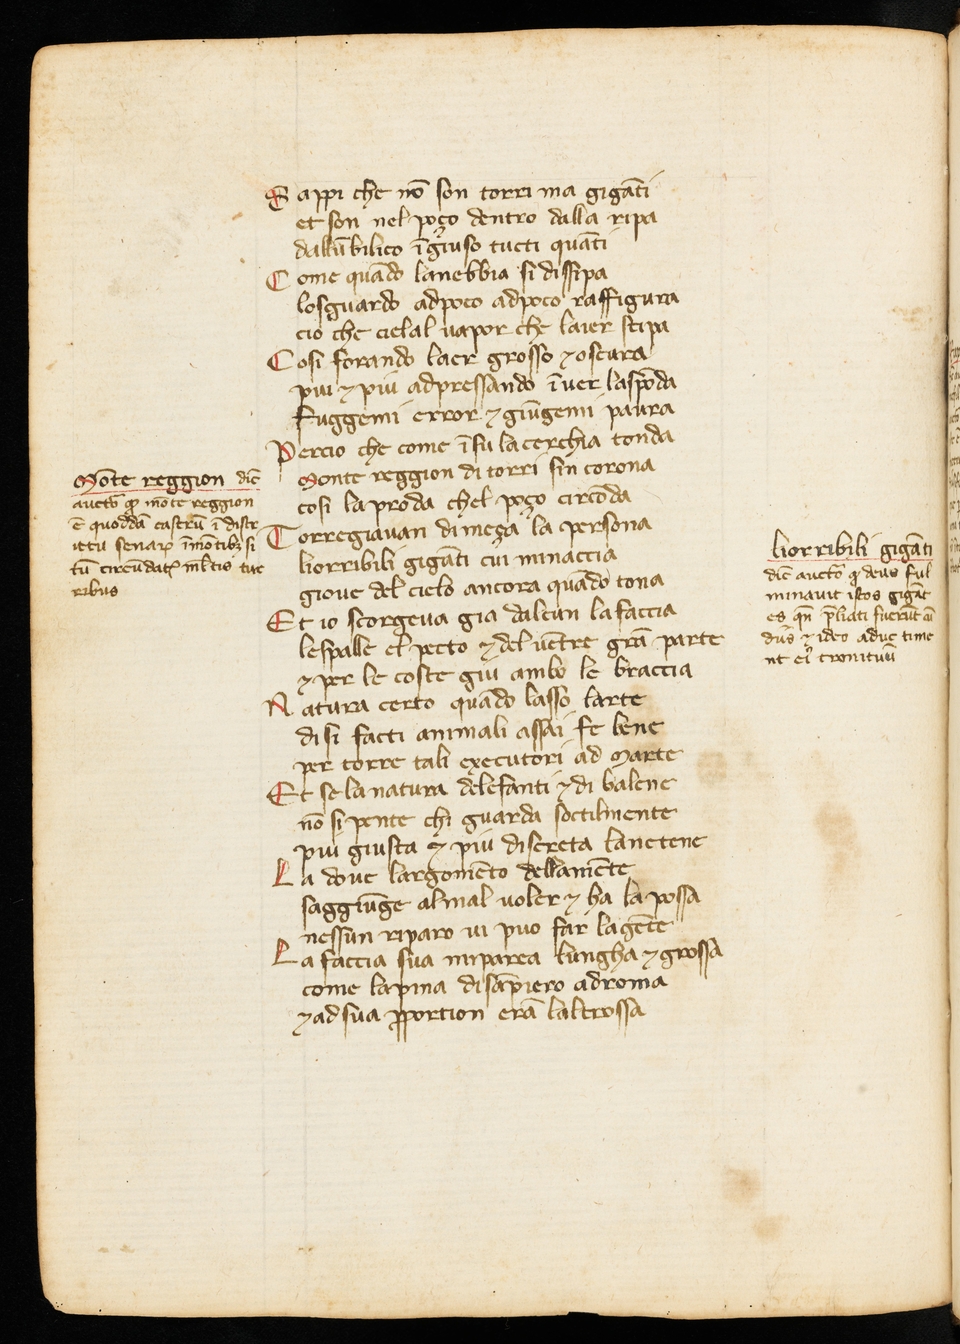 Sappi che nō son torri ma gigāti
et son nel poço dentro dalla ripa
dallūbilico īgiuso tucti quāti
Come quādo lanebbia si dissipa
losguardo adpoco adpoco raffigura
cio che cielal uapor che laier stipa
Cosi forando laer grosso ⁊ oscura
piu ⁊ piu adpressando īuer laspōda
fuggemi error ⁊ giūgemi paura
Percio che come īsu lacerchia tonda
Monte reggion di torri sin corona
cosi la proda chel poço circōda
Torregiauan di meça la persona
liorribili gigāti cui minaccia
gioue del cielo ancora quādo tona
Et io scorgeua gia dalcun la faccia
lespalle el pecto ⁊ del uētre grā parte
⁊ per le coste giu ambo le braccia
Natura certo quādo lasso larte
di si facti animali assai fe bene
per torre tali executori ad Marte
Et se la natura delefanti ⁊ di balene
nō si pente chi guarda soctilmente
piu giusta ⁊ piu discreta lanetene
La doue largomēto dellamēte
saggiūge almal uoler ⁊ ha la possa
nessun riparo ui puo far lagēte
La faccia sua mi parea lungha ⁊ grossa
come la pina di sāpiero adroma
⁊ ad sua ꝓportion erā laltrossa
Mōte reggion dic̄
auctō ꝙ mōte reggion
ē quoddā castrū ī distr
ictu senaꝝ īmōtibꝫ si
tū circūdatꝫ ml̄tis tur
ribus
liorribili gigāti
dic̄ auctō ꝙ deus ful
minauit istos gigāt
es qn̄ p̄liati fuerūt cū
dijs ⁊ ideo adhuc time
nt ei tronituū